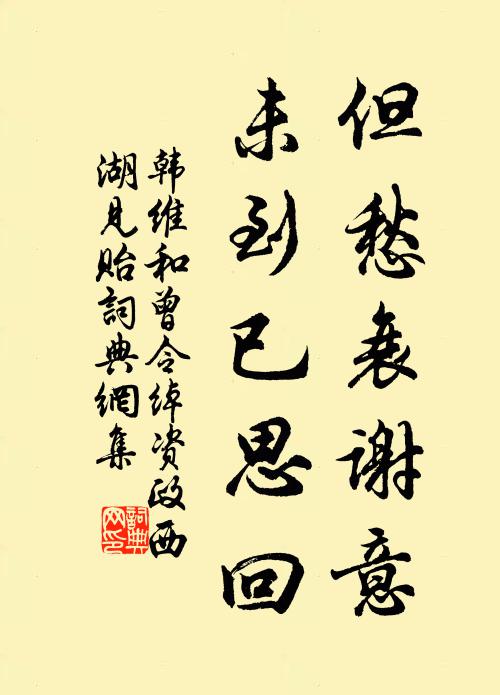 但愁衰谢意
未到已思回
韩维和曾令绰资政西
湖见贻詞典網集
詞典
网印